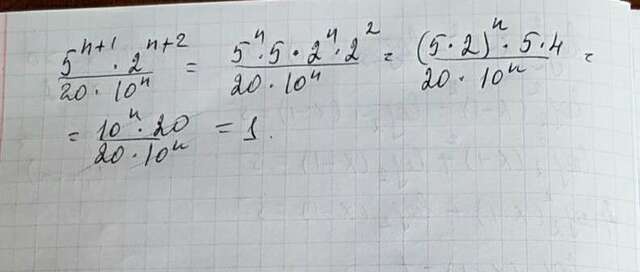 \frac{5^{n+1} \cdot 2^{n+2}}{20 \cdot 10^n} = \frac{5^n \cdot 5 \cdot 2^n \cdot 2^2}{20 \cdot 10^n} = \frac{(5 \cdot 2)^n \cdot 5 \cdot 4}{20 \cdot 10^n} =
= \frac{10^n \cdot 20}{20 \cdot 10^n} = 1.